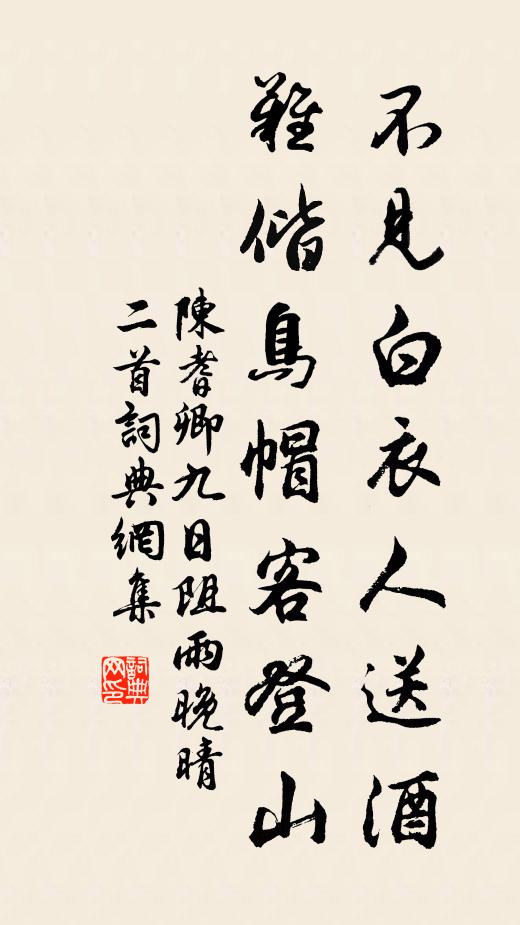 不見白衣人送酒
難偕烏帽客登山
陳耆卿九日阻雨晚晴
二首詞典網集
詞典
网印